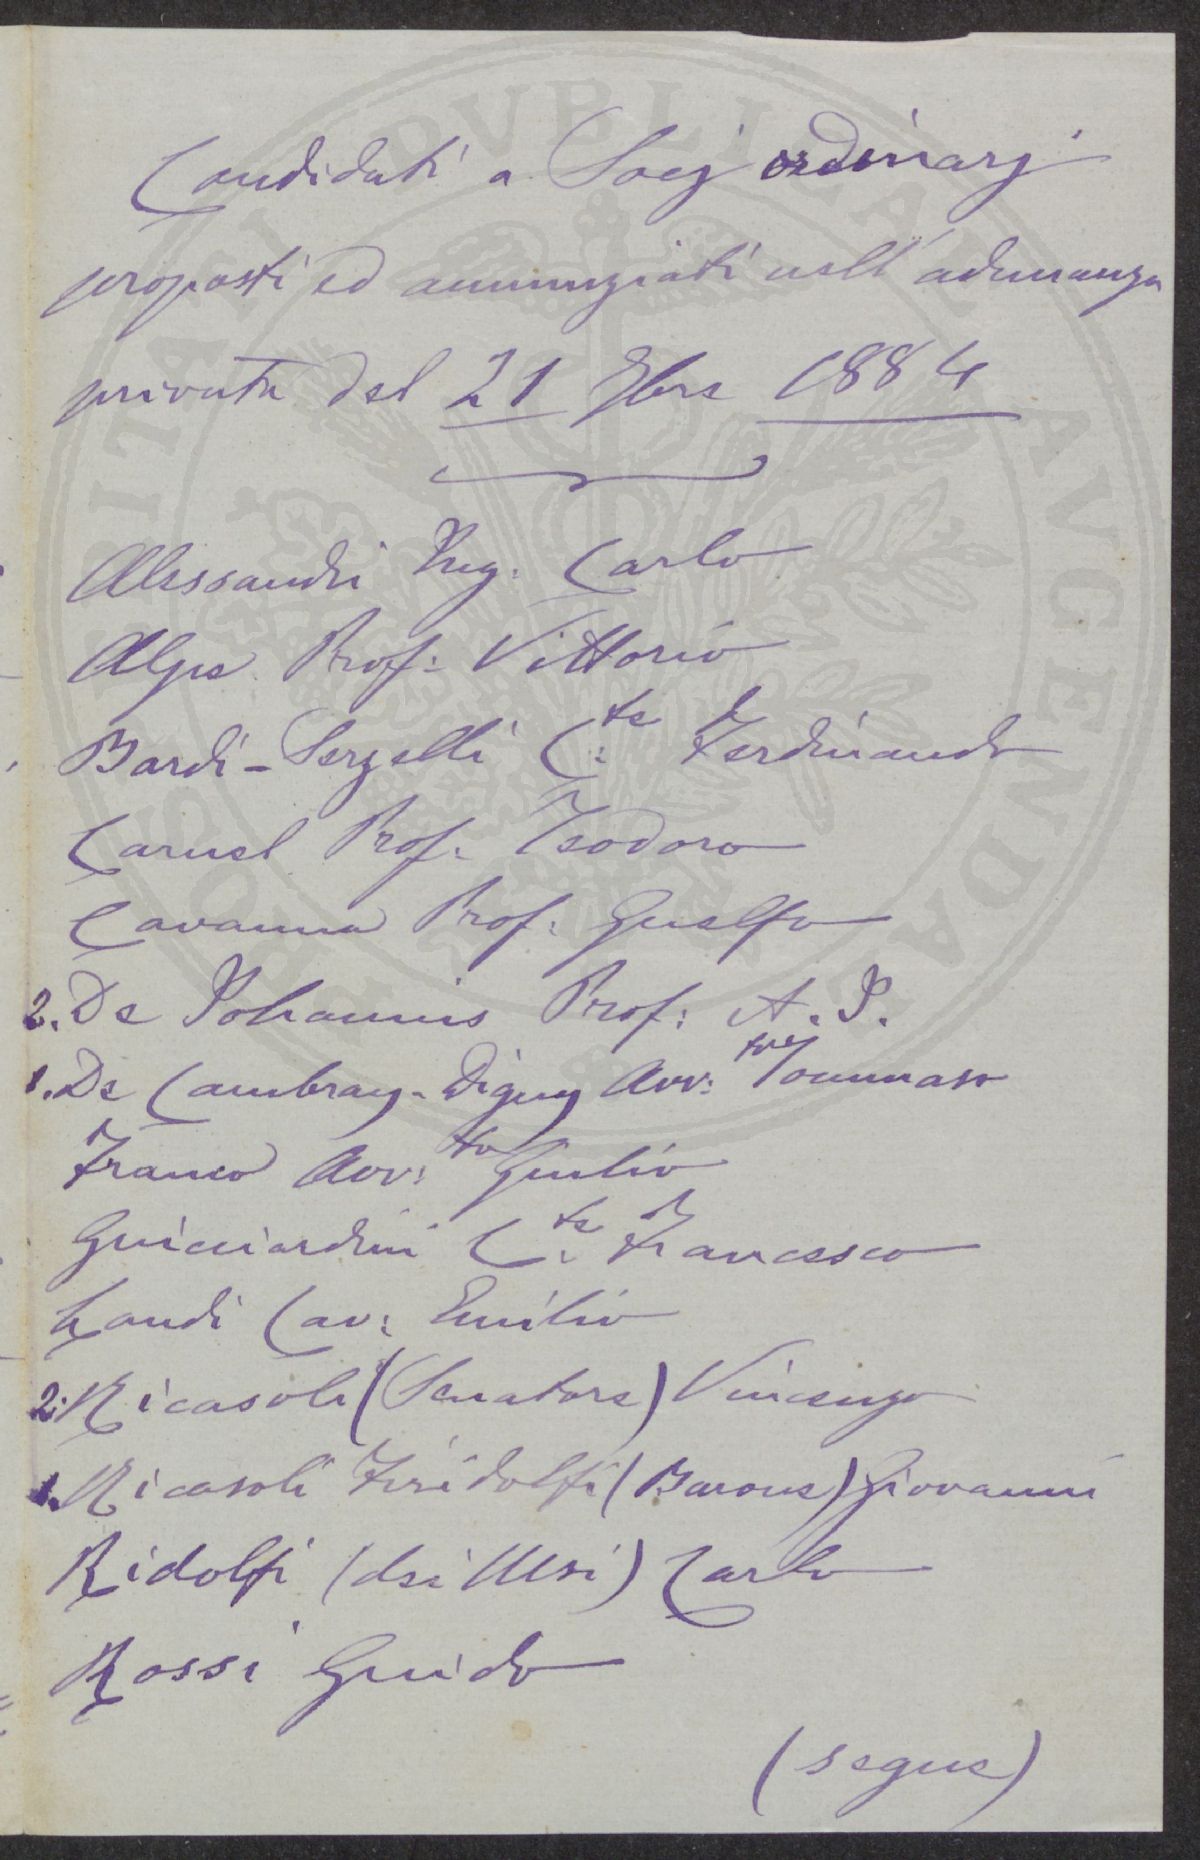 Candidati a Socj ordinarj
proposti ed annunziati nell'adunanza
privata del 21 1884
Alessandri Ing. Carlo
Alpe Prof: Vittorio
Bardi-Serzelli C:te Ferdinando
Caruel Prof: Teodoro
Cavanna Prof: Guelfo
2. De Johannis Prof: A. J.
1. De Cambray-Digny Avv: Tommaso
Franco Avv:to Giulio
Guicciardini C:te Francesco
Landi Cav: Emilio
2. Ricasoli (Senatore) Vincenzo
1. Ricasoli Firidolfi (Barone) Giovanni
Ridolfi (dei Msi) Carlo
Rossi Guido
(segue)